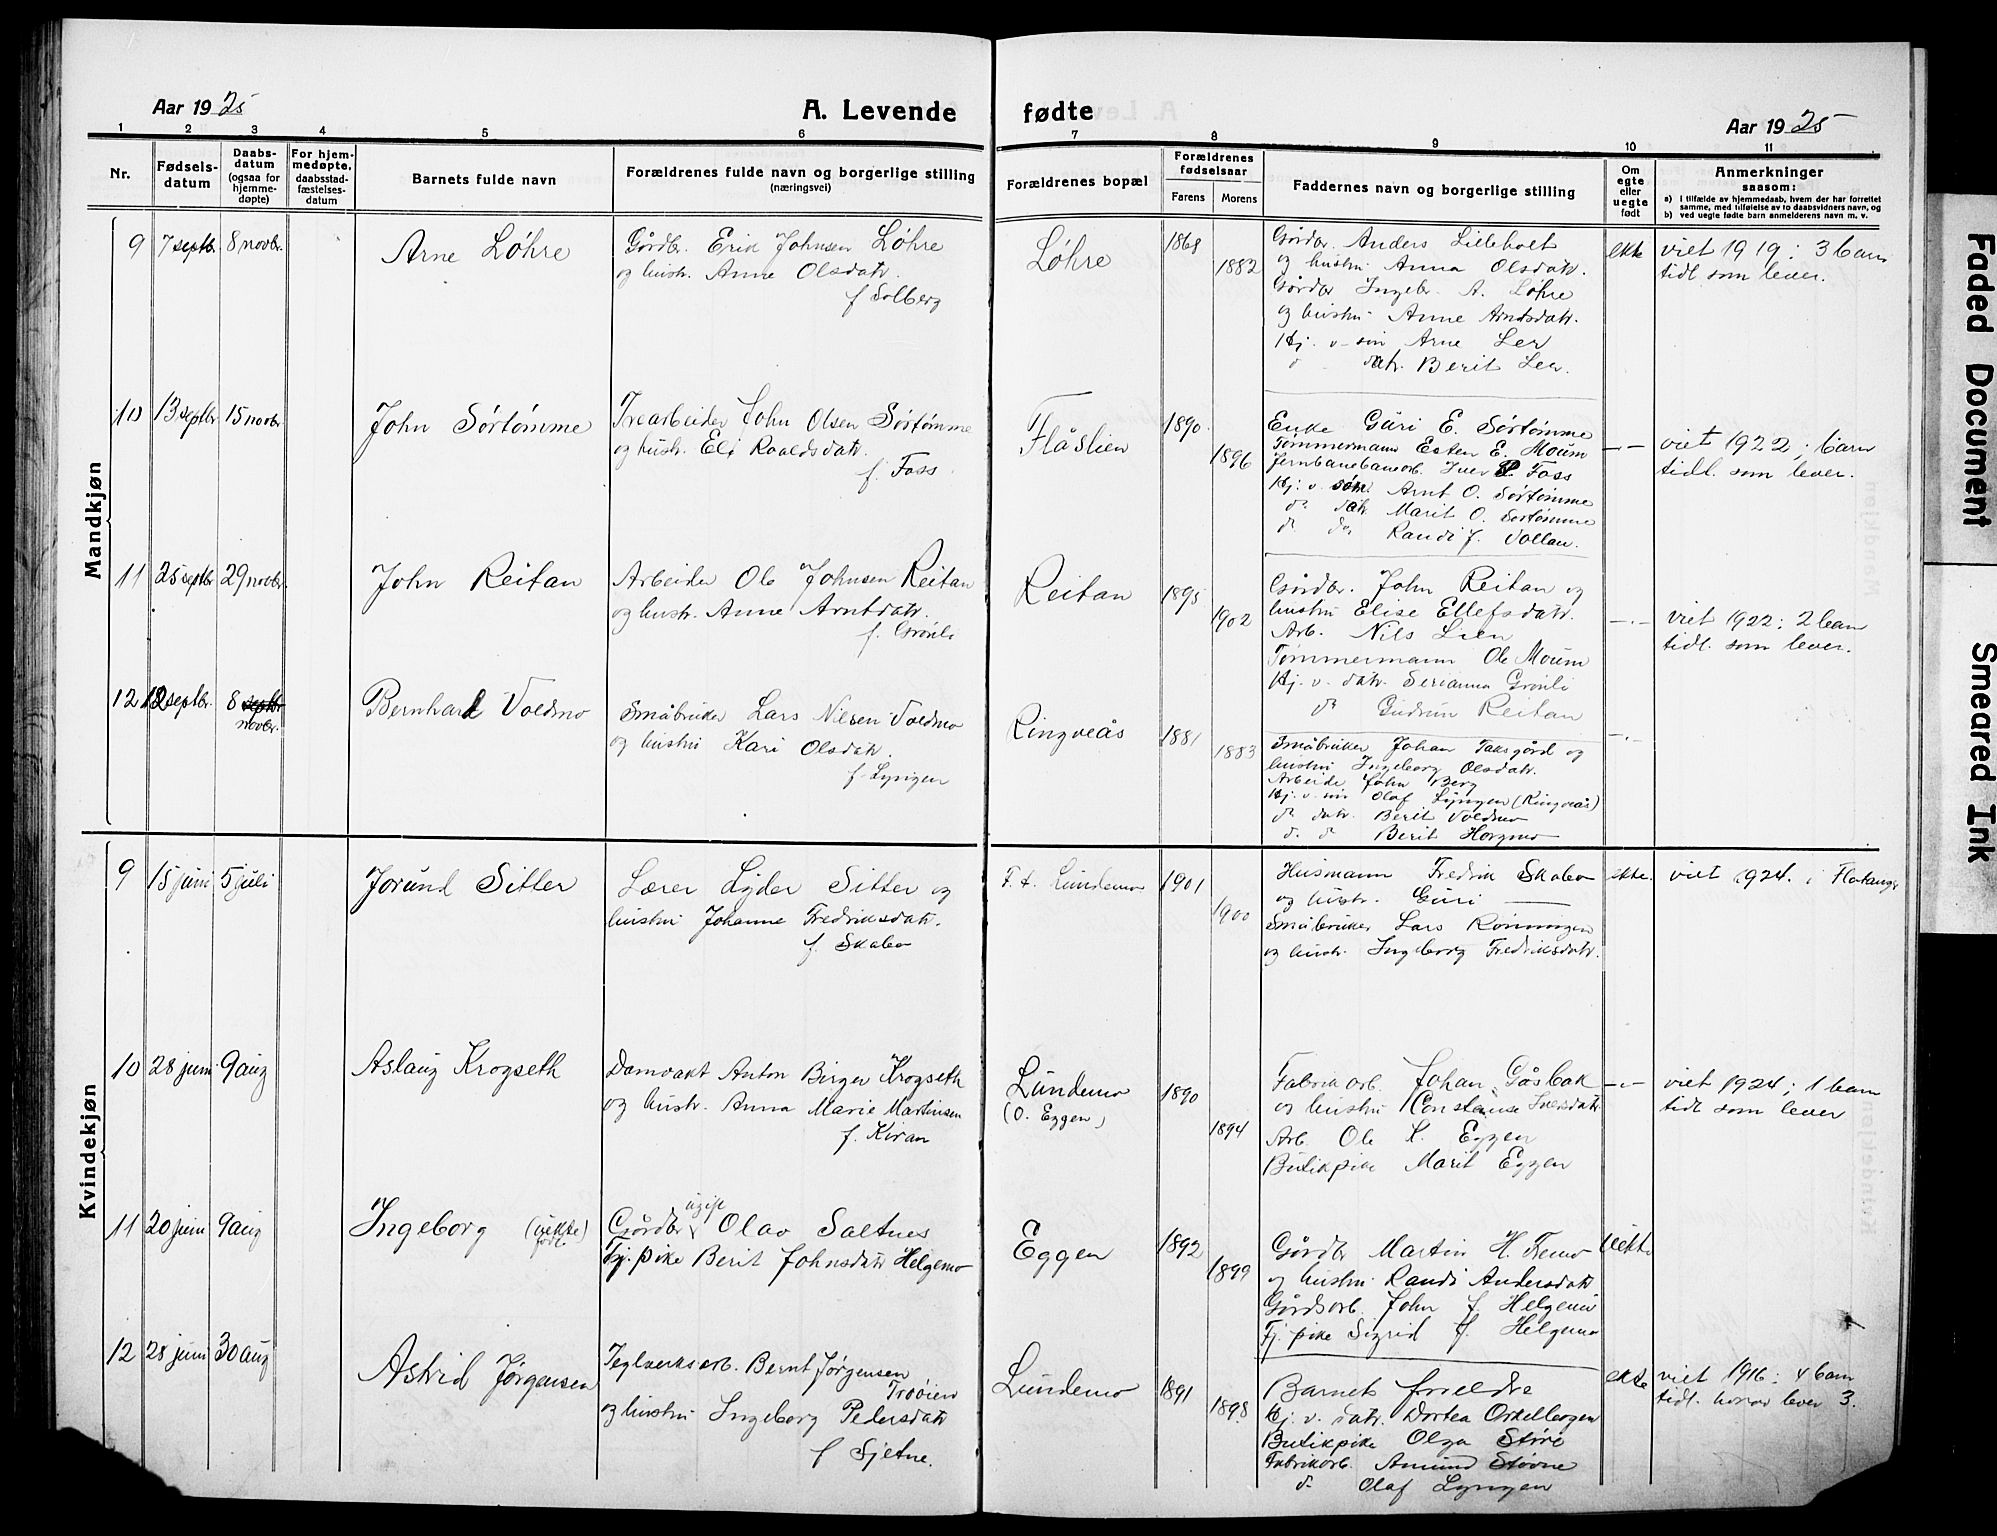 Aar 1925
A. Levende fødte
Aar 1925
1 2 3 4 5 6 7 8 9 10 11
Nr.
Fødsels-
datum
Daabs-
datum
(ogsaa for
hjemme-
døpte)
For hjem-
medøpte,
daabsstad-
fæstelses-
datum
Barnets fulde navn
Forældrenes fulde navn og borgerlige stilling
(næringsvei)
Forældrenes bopæl
Forældrenes
fødselsaar
Farens Morens
Faddernes navn og borgerlige stilling
Om
egte
eller
uegte
født
Anmerkninger
saasom:
a) I tilfælde av hjemmedaab, hvem der har forrettet
samme, med tilføielse av to daabsvidners navn, og
b) ved uegte fødte barn anmelderens navn m. v.
Mandkjøn
9 7 septbr. 8 novbr.
Arne Løhre
Gårdbr. Erik Johnsen Løhre
og hustr. Anne Olsdatr.
f. Solberg
Løhre
1868
1882
Gårdbr. Anders Lilleholt
og hustru Anna Olsdatr.
Gårdbr Ingebr. A. Løhre
og hustru Anne Arntsdatr.
Hj. v. søn Arne Ler
d datr. Berit Ler.
ekte
viet 1919: 3 barn
tidl. som lever.
10 13 septbr. 15 novbr.
John Sørtømme
Trearbeider John Olsen Sørtømme
og hustr. Eli Roaldsdatr.
f. Foss.
Flåslien
1890.
1896
Enke Guri E. Sørtømme
Tømmermann Esten E. Moum
Jernbanebanearb. Iver P. Foss
Hj. v. søn Arnt O. Sørtømme
do datr Marit O. Sørtømme
do do Randi J. Vollan.
-"-
viet 1922; 1 barn
tidl. som lever.
11 25 septbr 29 novbr.
John Reitan
Arbeider Ole Johnsen Reitan
og hustr. Anne Arntdatr.
f. Grønli
Reitan
1895
1902
Gårdbr. John Reitan og
hustru Elise Ellefsdatr.
Arb. Nils Lien
Tømmermann Ole Moum
Hj. v. datr. Serianna Grønli
do Gudrun Reitan
-"-
viet 1922: 2 barn
tidl. som lever.
12 12 septbr. 8 septbr
novbr.
Bernhard Voldmo
Småbruker Lars Nilsen Voldmo
og hustru Kari Olsdatr.
f. Lyngen
Ringveås
1881
1883
Småbruker Johan Taksgård og
hustru Ingeborg Olsdatr.
Arbeide John Berg
Hj. v. søn Olaf Lyngen (Ringveås)
do datr. Berit Voldmo
d. d Berit Horgmo
-"-
Kvindekjøn
9 15 juni 5 juli
Jorund Sitter
Lærer Lyder Sitter og
hustru Johanne Fredriksdatr.
f. Skabo
F. t. Lundemo
1901
1900
Husmann Fredrik Skabo
og hustr. Guri —
Småbruker Lars Rønningen
og hustr. Ingeborg Fredriksdatr.
ekte.
viet 1924. i
10 28 juni 9 aug
Aslaug Krogseth
Damvakt Anton Birger Krogseth
og hustr. Anna Marie Martinsen
f. Kiran
Lundemo
(O. Eggen)
1890
1894
Fabrikarb. Johan Gåsbak
og hustru Constanse
Arb. Ole K. Eggen
Butikpike Marit Eggen
-"-
viet 1924; 1 barn
tidl. som lever
11 20 juni 9 aug
Ingeborg (uekte)
født.
ugift
Gårdbr Olav Saltnes
Tj. pike Berit Johnsdatr Helgemo
Eggen
1892
1899
Gårdbr Martin H. Tremo
og hustru Randi Andersdatr
Gårdsarb. John J. Helgemo
Tj. pike Sigrid J. Helgemo
Uekte
12 28 juni 30 aug
Astrid Jørgensen
Teglverksarb. Bernt Jørgensen
Trøøien
og hustru Ingeborg Pedersdatr
f Sjetne.
Lundemo
1891
1898
Barnets foreldre
Hj. v. datr. Dortea Orkelbogen
Butikpike Olga Støre
Fabrikarb. Amund Støvne
d. Olaf Lyngen
ekte
viet 1916: 4 barn
tidl. hvorav lever 3.
Faded Document
Smeared Ink